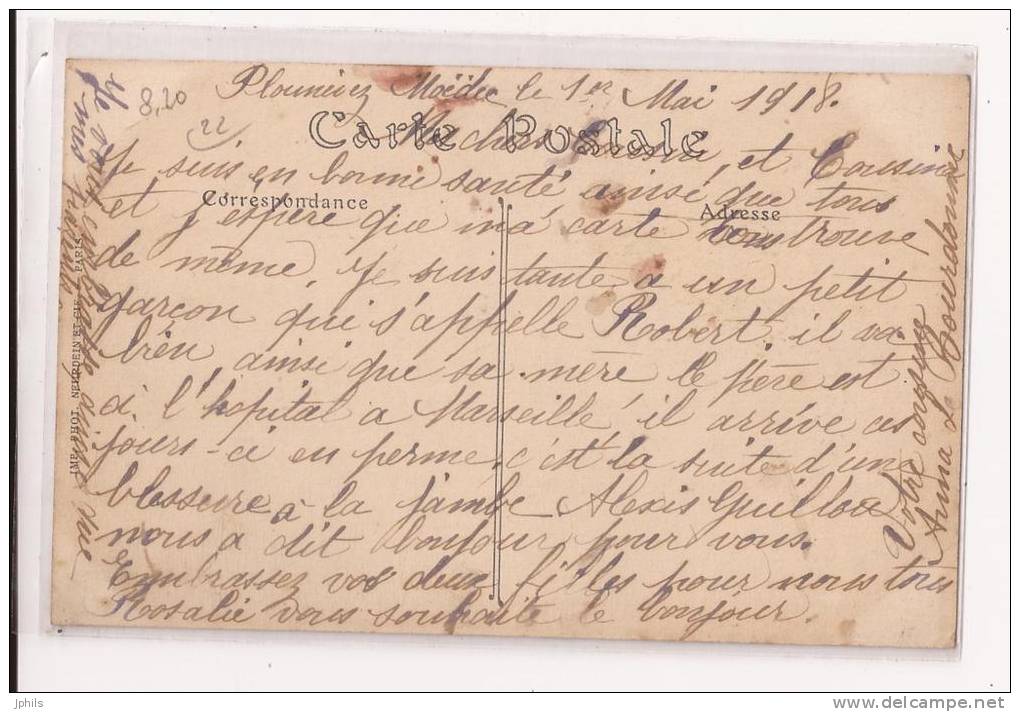 Plounévez Moëdec le 1er Mai 1918.
Carte Postale
Ma chère Cousine, et Cousine
Je suis en bonne santé ainsi que tous
Correspondance
Adresse
et j'espère que ma carte vous trouve
de même, Je suis tante a un petit
garçon qui s'appelle Robert, il va
bien, ainsi que sa mère le père est
à l'hopital a Marseille il arrive ces
jours-ci en perme, c'est la suite d'une
blessure à la jambe Alexis Guillou
nous a dit bonjour pour vous.
Embrassez vos deux filles pour nous tous
Rosalie vous souhaite le bonjour.
Votre cousine
Anna Le Bourdonnec
Je vous embrasse ainsi que
IMP. PHOT. NEURDEIN ET CIE PARIS
8,20
22
jphils
www.delcampe.net